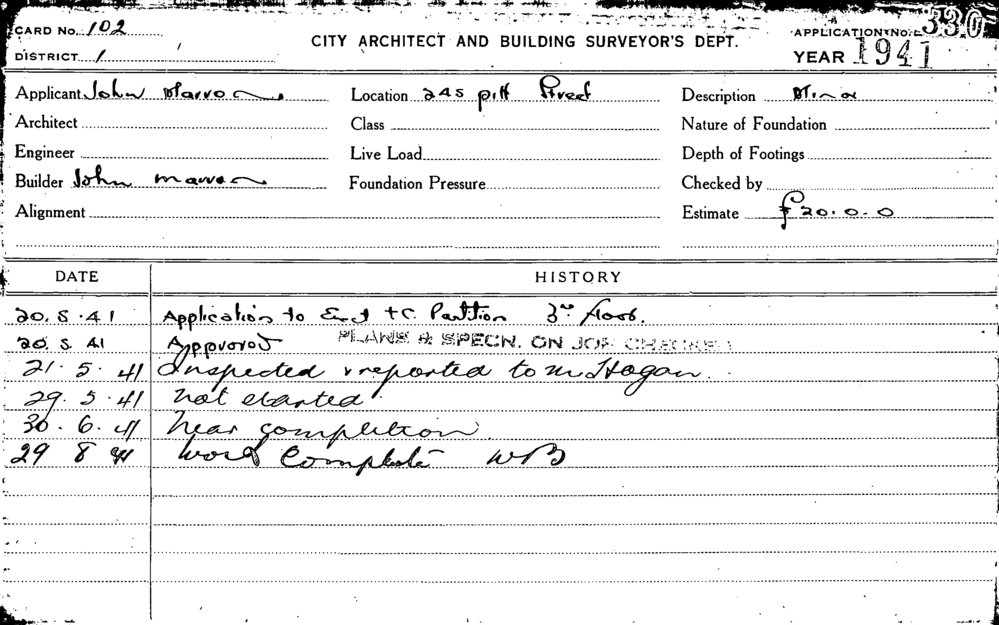 CARD No. 102
CITY ARCHITECT AND BUILDING SURVEYOR'S DEPT.
APPLICATION No. 330
DISTRICT 1
YEAR 1941
Applicant John Marron
Location 245 pitt Street
Description Minor
Architect
Class
Nature of Foundation
Engineer
Live Load
Depth of Footings
Builder John Marron
Foundation Pressure
Checked by
Alignment
Estimate £20.0.0
DATE HISTORY
20.5.41 Application to Erect T.C. Partition 3rd floor.
20.5.41 Approved PLANS & SPECN. ON JOB CHECKED
21.5.41 Inspected & reported to Mr Hogan
29.5.41 Not started
30.6.41 Near completion
29 8 41 Work Complete WB